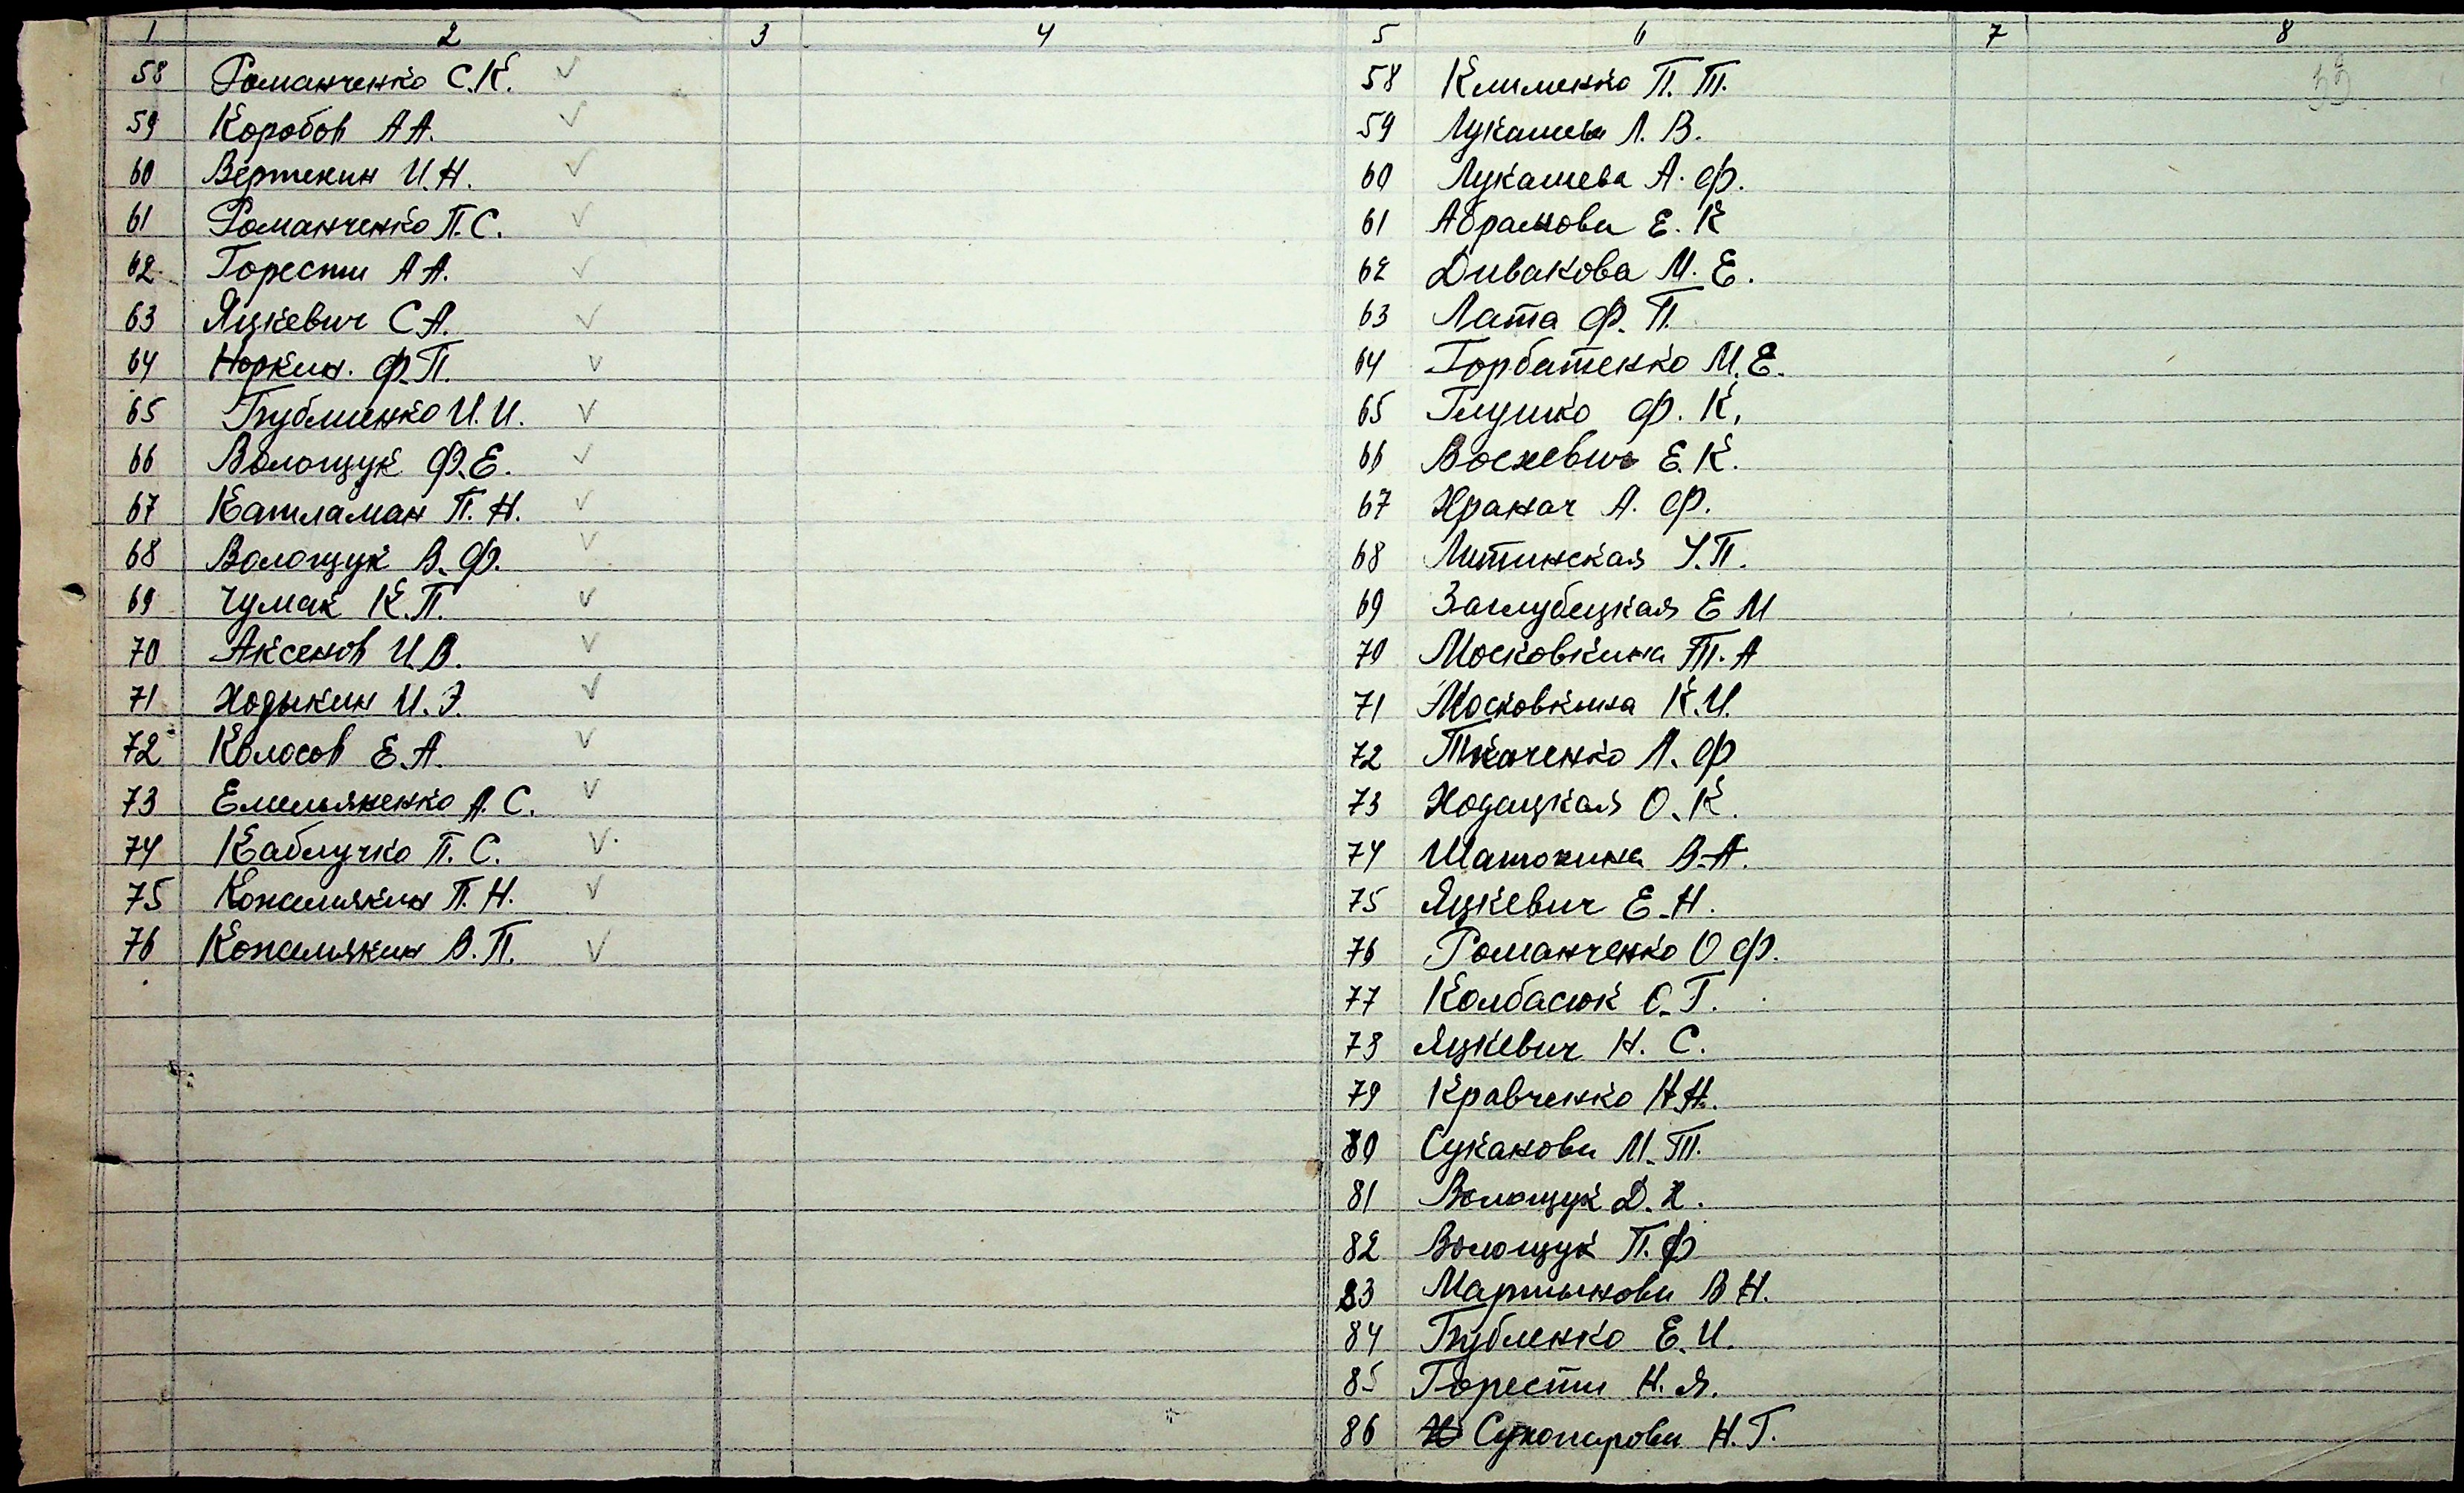 1 2 3 4 5 6 7 8
58 Романченко С.К. ✓
59 Коробов А А. ✓
60 Вертекин И.Н. ✓
61 Романченко П.С. ✓
62 Горести А А. ✓
63 Яцкевич С А. ✓
64 Норкин. Ф.П. ✓
65 Трубменко И.И. ✓
66 Волощук Ф.Е. ✓
67 Катламан П.Н. ✓
68 Волощук В.Ф. ✓
69 Чумак К.П. ✓
70 Аксенов И.В. ✓
71 Ходыкин И.Э. ✓
72 Колосов Е.А. ✓
73 Емельяненко А.С. ✓
74 Каблучко П.С. ✓
75 Кожемякин П.Н. ✓
76 Кожемякин В.П. ✓
33
58 Клименко П.Т.
59 Лукашева Л.В.
60 Лукашева А.Ф.
61 Абрамова Е.К
62 Дивакова М.Е.
63 Лата Ф.П.
64 Горбатенко М.Е.
65 Глушко Ф.К.
66 Воскевич Е.К.
67 Храпач А.Ф.
68 Литинская У.П.
69 Заглубецкая Е М
70 Московкина Т.А
71 Московкина К.И.
72 Ткаченко Л.Ф
73 Ходацкая О.К.
74 Шатохина В.А.
75 Яцкевич Е.Н.
76 Романченко О Ф.
77 Колбасюк О.Г.
78 Яцкевич Н.С.
79 Кравченко Н.Н.
80 Суканова М.Т.
81 Волощук Д.Х.
82 Волощук П.Ф
83 Мартынова В Н.
84 Трубленко Е.И.
85 Горести Н.Я.
86 Сухопарова Н.Г.